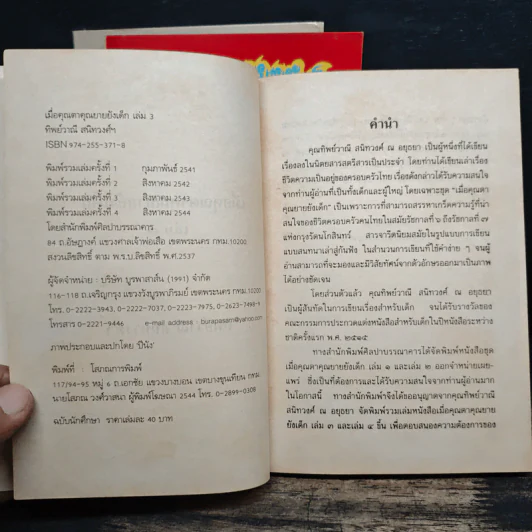 เมื่อคุณตาคุณยายยังเด็ก เล่ม 3
ทิพย์วาณี สนิทวงศ์ฯ
ISBN 974-255-371-8
พิมพ์รวมเล่มครั้งที่ 1 กุมภาพันธ์ 2541
พิมพ์รวมเล่มครั้งที่ 2 สิงหาคม 2542
พิมพ์รวมเล่มครั้งที่ 3 สิงหาคม 2543
พิมพ์รวมเล่มครั้งที่ 4 สิงหาคม 2544
โดยสำนักพิมพ์ศิลปาบรรณาคาร
84 ถ.อัษฎางค์ แขวงศาลเจ้าพ่อเสือ เขตพระนคร กทม.10200
สงวนลิขสิทธิ์ ตาม พ.ร.บ.ลิขสิทธิ์ พ.ศ.2537
ผู้จัดจำหน่าย : บริษัท บูรพาสาส์น (1991) จำกัด
116-118 ถ.เจริญกรุง แขวงวังบูรพาภิรมย์ เขตพระนคร กทม.
โทร. 0-2222-3943, 0-2222-7037, 0-2223-7975, 0-2623-7498-9
โทรสาร 0-2221-9446 e-mail address : burapasarn@yahoo.com
ภาพประกอบและปกโดย 'ปีนัง'
พิมพ์ที่ : โสภณการพิมพ์
117/94-95 หมู่ 6 ถ.เอกชัย แขวงบางบอน เขตบางขุนเทียน กทม.
นายโสภณ วงศ์วาสนา ผู้พิมพ์โฆษณา 2544 โทร. 0-2899-0308
ฉบับนักศึกษา ราคาเล่มละ 40 บาท
คำนำ
คุณทิพย์วาณี สนิทวงศ์ ณ อยุธยา เป็นผู้หนึ่งที่ได้เขียน
เรื่องลงในนิตยสารสตรีสารเป็นประจำ โดยท่านได้เขียนเล่าเรื่อง
ชีวิตความเป็นอยู่ของครอบครัวไทย เรื่องดังกล่าวได้รับความสนใจ
จากท่านผู้อ่านที่เป็นทั้งเด็กและผู้ใหญ่ โดยเฉพาะชุด "เมื่อคุณตา
คุณยายยังเด็ก" เป็นเพราะการที่สามารถสรรหาเกร็ดความรู้ที่น่า
สนใจของชีวิตครอบครัวคนไทยในสมัยรัชกาลที่ ๖ ถึงรัชกาลที่ ๗
แห่งกรุงรัตนโกสินทร์ สารจารีตนิยมสมัยในรูปแบบการเขียน
แบบสนทนาเล่าสู่กันฟัง ในสำนวนการเขียนที่ใช้คำง่าย ๆ จนผู้
อ่านสามารถที่จะมองและมีวิสัยทัศน์จากตัวอักษรออกมาเป็นภาพ
ได้อย่างชัดเจน
โดยส่วนตัวแล้ว คุณทิพย์วาณี สนิทวงศ์ ณ อยุธยา
เป็นผู้สันทัดในการเขียนเรื่องสำหรับเด็ก จนได้รับรางวัลของ
คณะกรรมการประกวดแต่งหนังสือสำหรับเด็กในปีหนังสือระหว่าง
ชาติครั้งแรก พ.ศ. ๒๕๑๕
ทางสำนักพิมพ์ศิลปาบรรณาคารได้จัดพิมพ์หนังสือชุด
เมื่อคุณตาคุณยายยังเด็ก เล่ม ๑ และเล่ม ๒ ออกจำหน่ายเผย
แพร่ ซึ่งเป็นที่ต้องการและได้รับความสนใจจากท่านผู้อ่านมาก
ในโอกาสนี้ ทางสำนักพิมพ์ฯจึงได้ขออนุญาตจากคุณทิพย์วาณี
สนิทวงศ์ ณ อยุธยา จัดพิมพ์รวมเล่มหนังสือเมื่อคุณตาคุณยาย
ยังเด็ก เล่ม ๓ และเล่ม ๔ ขึ้น เพื่อตอบสนองความต้องการของ